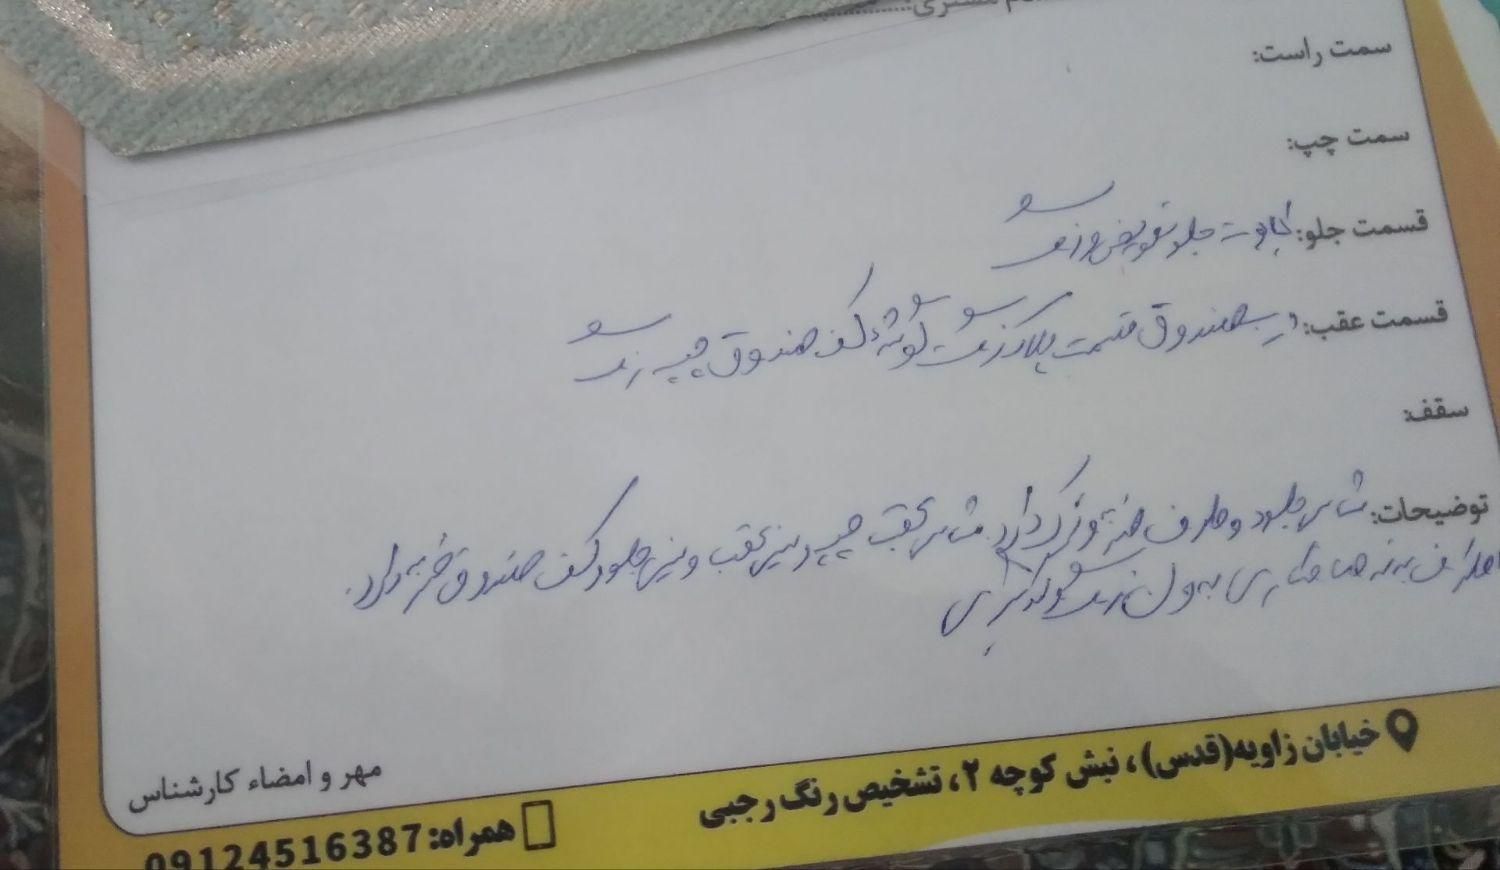 مشتری:
سمت راست:
سمت چپ:
قسمت جلو: کاپوت جلو تعویض و زنگ
قسمت عقب: درب صندوق قسمت پلاک گوشه کف صندوق چپ
سقف:
توضیحات: شاسی جلو دو طرف ضربه و ترک دارد. شاسی عقب چپ و سینی عقب و سینی جلو و کف صندوق ضربه دارد.
اطراف بدنه صافکاری بدون رنگ
خیابان زاویه(قدس)، نبش کوچه ۲، تشخیص رنگ رجبی
مهر و امضاء کارشناس
همراه: 09124516387